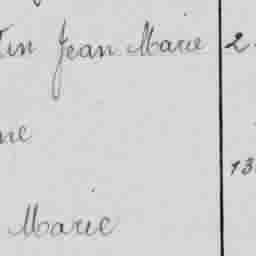 Jean Marie 2
ne
13
Marie